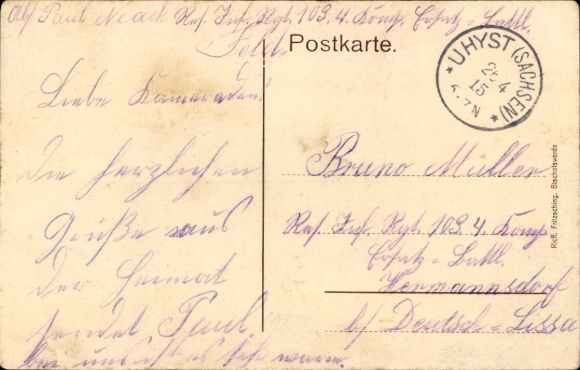 Abs Paul Noack Res. Inf. Rgt. 103. 4. Komp. Ersatz=Batl.
Feld
Postkarte.
UHYST (SACHSEN)
25 4
15
6-7N
Liebe Kameraden!
Die herzlichen
Grüße aus
der Heimat
sendet Paul
bei uns ist es sehr warm.
Bruno Müller
Res. Inf. Rgt. 103. 4. Komp
Ersatz=Batl.
Hermannsdorf
b/ Deutsch=Lissa
Rich. Fritzsching, Bischofswerda